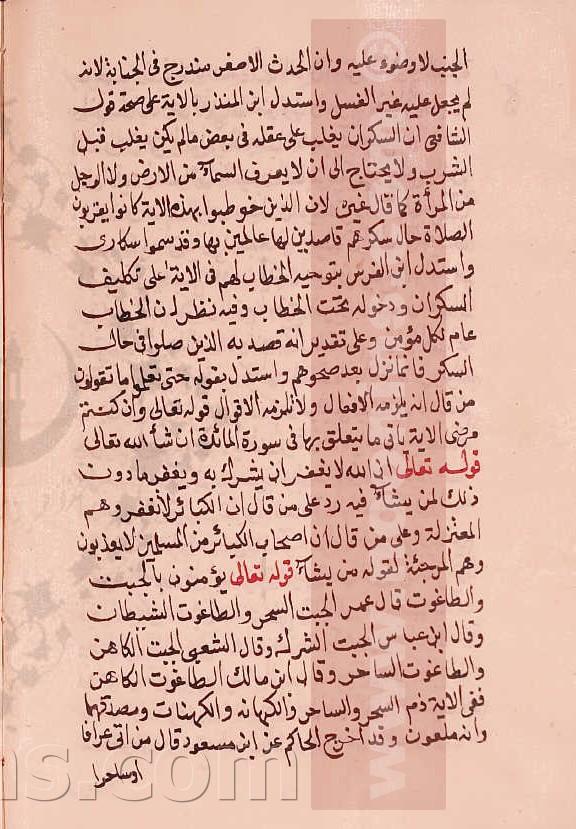 الجنب لا وضوء عليه وان الحدث الاصغر مندرج فى الجنابة لانه
لم يجعل عليه غير الغسل واستدل ابن المنذر بالاية على صحة قول
الشافعى ان السكران يغلب على عقله فى بعض مالم يكن يغلب قبل
الشرب ولا يحتاج الى ان لا يعرف السماء من الارض ولا الرجل
من المرأة كما قال غيره لان الذين خوطبوا بهذه الاية كانوا يقربون
الصلاة حال سكرهم قاصدين لها عالمين بها وقد سموا سكارى
واستدل ابن الفرس بتوجيه الخطاب لهم فى الاية على تكليف
السكران ودخوله تحت الخطاب وفيه نظر لان الخطاب
عام لكل مؤمن وعلى تقدير انه قصد به الذين صلوا فى حال
السكر فانما نزل بعد صحوهم واستدل بقوله حتى تعلموا ما تقولون
من قال انه يلزمه الافعال ولا تلزمه الاقوال قوله تعالى وان كنتم
مرضى الاية ياتى ما يتعلق بها فى سورة المائدة ان شأ الله تعالى
قوله تعالى ان الله لا يغفر ان يشرك به ويغفر ما دون
ذلك لمن يشاء فيه رد على من قال ان الكبائر لا تغفر وهم
المعتزلة وعلى من قال ان اصحاب الكبائر من المسلمين لا يعذبون
وهم المرجئة لقوله من يشاء قوله تعالى يؤمنون بالجبت
والطاغوت قال عمر الجبت السحر والطاغوت الشيطان
وقال ابن عباس الجبت الشرك وقال الشعبى الجبت الكاهن
والطاغوت الساحر وقال ابن مالك الطاغوت الكاهن
ففى الاية ذم السحر والساحر والكهانه والكهنات ومصدقهما
وانه ملعون وقد اخرج الحاكم عن ابن مسعود قال من اتى عرافا
او ساحرا
ns.com